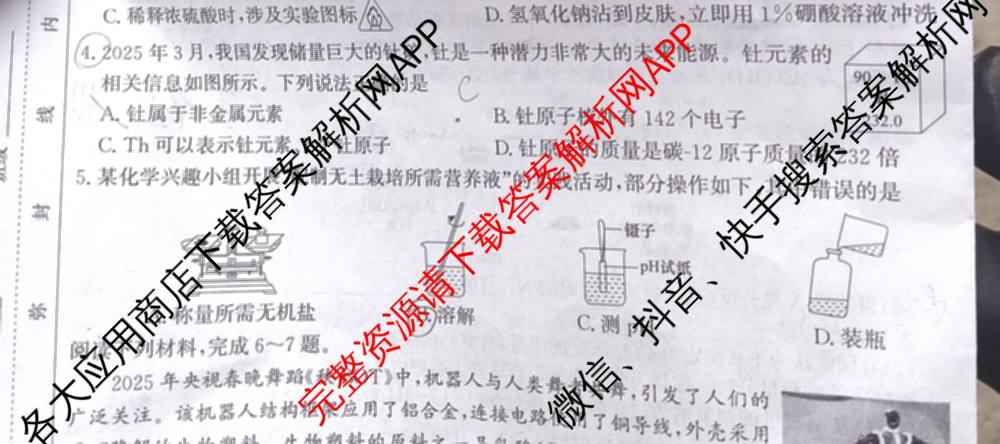 C. 稀释浓硫酸时,涉及实验图标
D. 氢氧化钠沾到皮肤,立即用 1%硼酸溶液冲洗
4. 2025 年 3 月,我国发现储量巨大的钍 钍是一种潜力非常大的未来能源。钍元素的
相关信息如图所示。下列说法 的是
90
232.0
A. 钍属于非金属元素
B. 钍原子 有 142 个电子
C. Th 可以表示钍元素 钍原子
D. 钍 的质量是碳-12 原子质量 232 倍
5. 某化学兴趣小组开 制无土栽培所需营养液”的 活动,部分操作如下 错误的是
镊子
pH试纸
称量所需无机盐
溶解
C. 测
D. 装瓶
阅读 列材料,完成 6~7 题。
2025 年央视春晚舞蹈《秧 OT》中,机器人与人类舞 ,引发了人们的
广泛关注。该机器人结构框架应用了铝合金,连接电路 用了铜导线,外壳采用
内
线
封
弥
各大应用商店下载答案解析网APP
完整资源请下载答案解析网APP
微信、抖音、快手搜索答案解析网